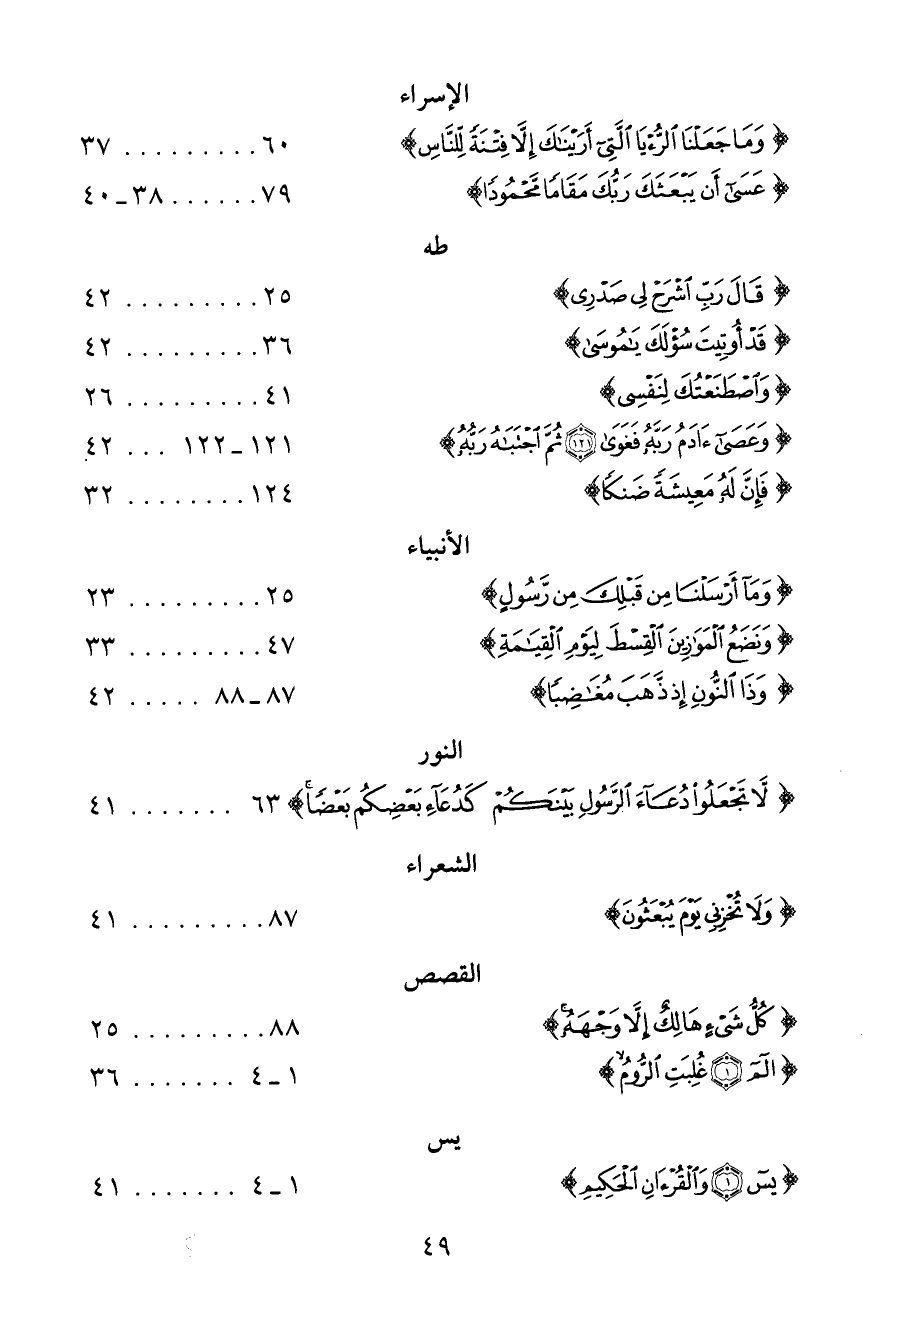 الإسراء
﴿ وَمَا جَعَلْنَا ٱلرُّءْيَا ٱلَّتِىٓ أَرَيْنَـٰكَ إِلَّا فِتْنَةً لِّلنَّاسِ ﴾ ٦٠ . . . . . . . . . ٣٧
﴿ عَسَىٰٓ أَن يَبْعَثَكَ رَبُّكَ مَقَامًا مَّحْمُودًا ﴾ ٧٩ . . . . . . ٣٨ ـ ٤٠
طه
﴿ قَالَ رَبِّ ٱشْرَحْ لِى صَدْرِى ﴾ ٢٥ . . . . . . . . . ٤٢
﴿ قَدْ أُوتِيتَ سُؤْلَكَ يَـٰمُوسَىٰ ﴾ ٣٦ . . . . . . . . . ٤٢
﴿ وَٱصْطَنَعْتُكَ لِنَفْسِى ﴾ ٤١ . . . . . . . . . ٢٦
﴿ وَعَصَىٰٓ ءَادَمُ رَبَّهُۥ فَغَوَىٰ ١٢١ ثُمَّ ٱجْتَبَـٰهُ رَبُّهُۥ ﴾ ١٢١ ـ ١٢٢ . . . ٤٢
﴿ فَإِنَّ لَهُۥ مَعِيشَةً ضَنكًا ﴾ ١٢٤ . . . . . . . . ٣٢
الأنبياء
﴿ وَمَآ أَرْسَلْنَا مِن قَبْلِكَ مِن رَّسُولٍ ﴾ ٢٥ . . . . . . . . . ٢٣
﴿ وَنَضَعُ ٱلْمَوَٰزِينَ ٱلْقِسْطَ لِيَوْمِ ٱلْقِيَـٰمَةِ ﴾ ٤٧ . . . . . . . . . ٣٣
﴿ وَذَا ٱلنُّونِ إِذ ذَّهَبَ مُغَـٰضِبًا ﴾ ٨٧ ـ ٨٨ . . . . . ٤٢
النور
﴿ لَّا تَجْعَلُوا۟ دُعَآءَ ٱلرَّسُولِ بَيْنَكُمْ كَدُعَآءِ بَعْضِكُم بَعْضًا ۚ ﴾ ٦٣ . . . . . . . ٤١
الشعراء
﴿ وَلَا تُخْزِنِى يَوْمَ يُبْعَثُونَ ﴾ ٨٧ . . . . . . . . . ٤١
القصص
﴿ كُلُّ شَىْءٍ هَالِكٌ إِلَّا وَجْهَهُۥ ۚ ﴾ ٨٨ . . . . . . . . . ٢٥
﴿ الٓمٓ ١ غُلِبَتِ ٱلرُّومُ ﴾ ١ ـ ٤ . . . . . . . ٣٦
يس
﴿ يسٓ ١ وَٱلْقُرْءَانِ ٱلْحَكِيمِ ﴾ ١ ـ ٤ . . . . . . . ٤١
٤٩